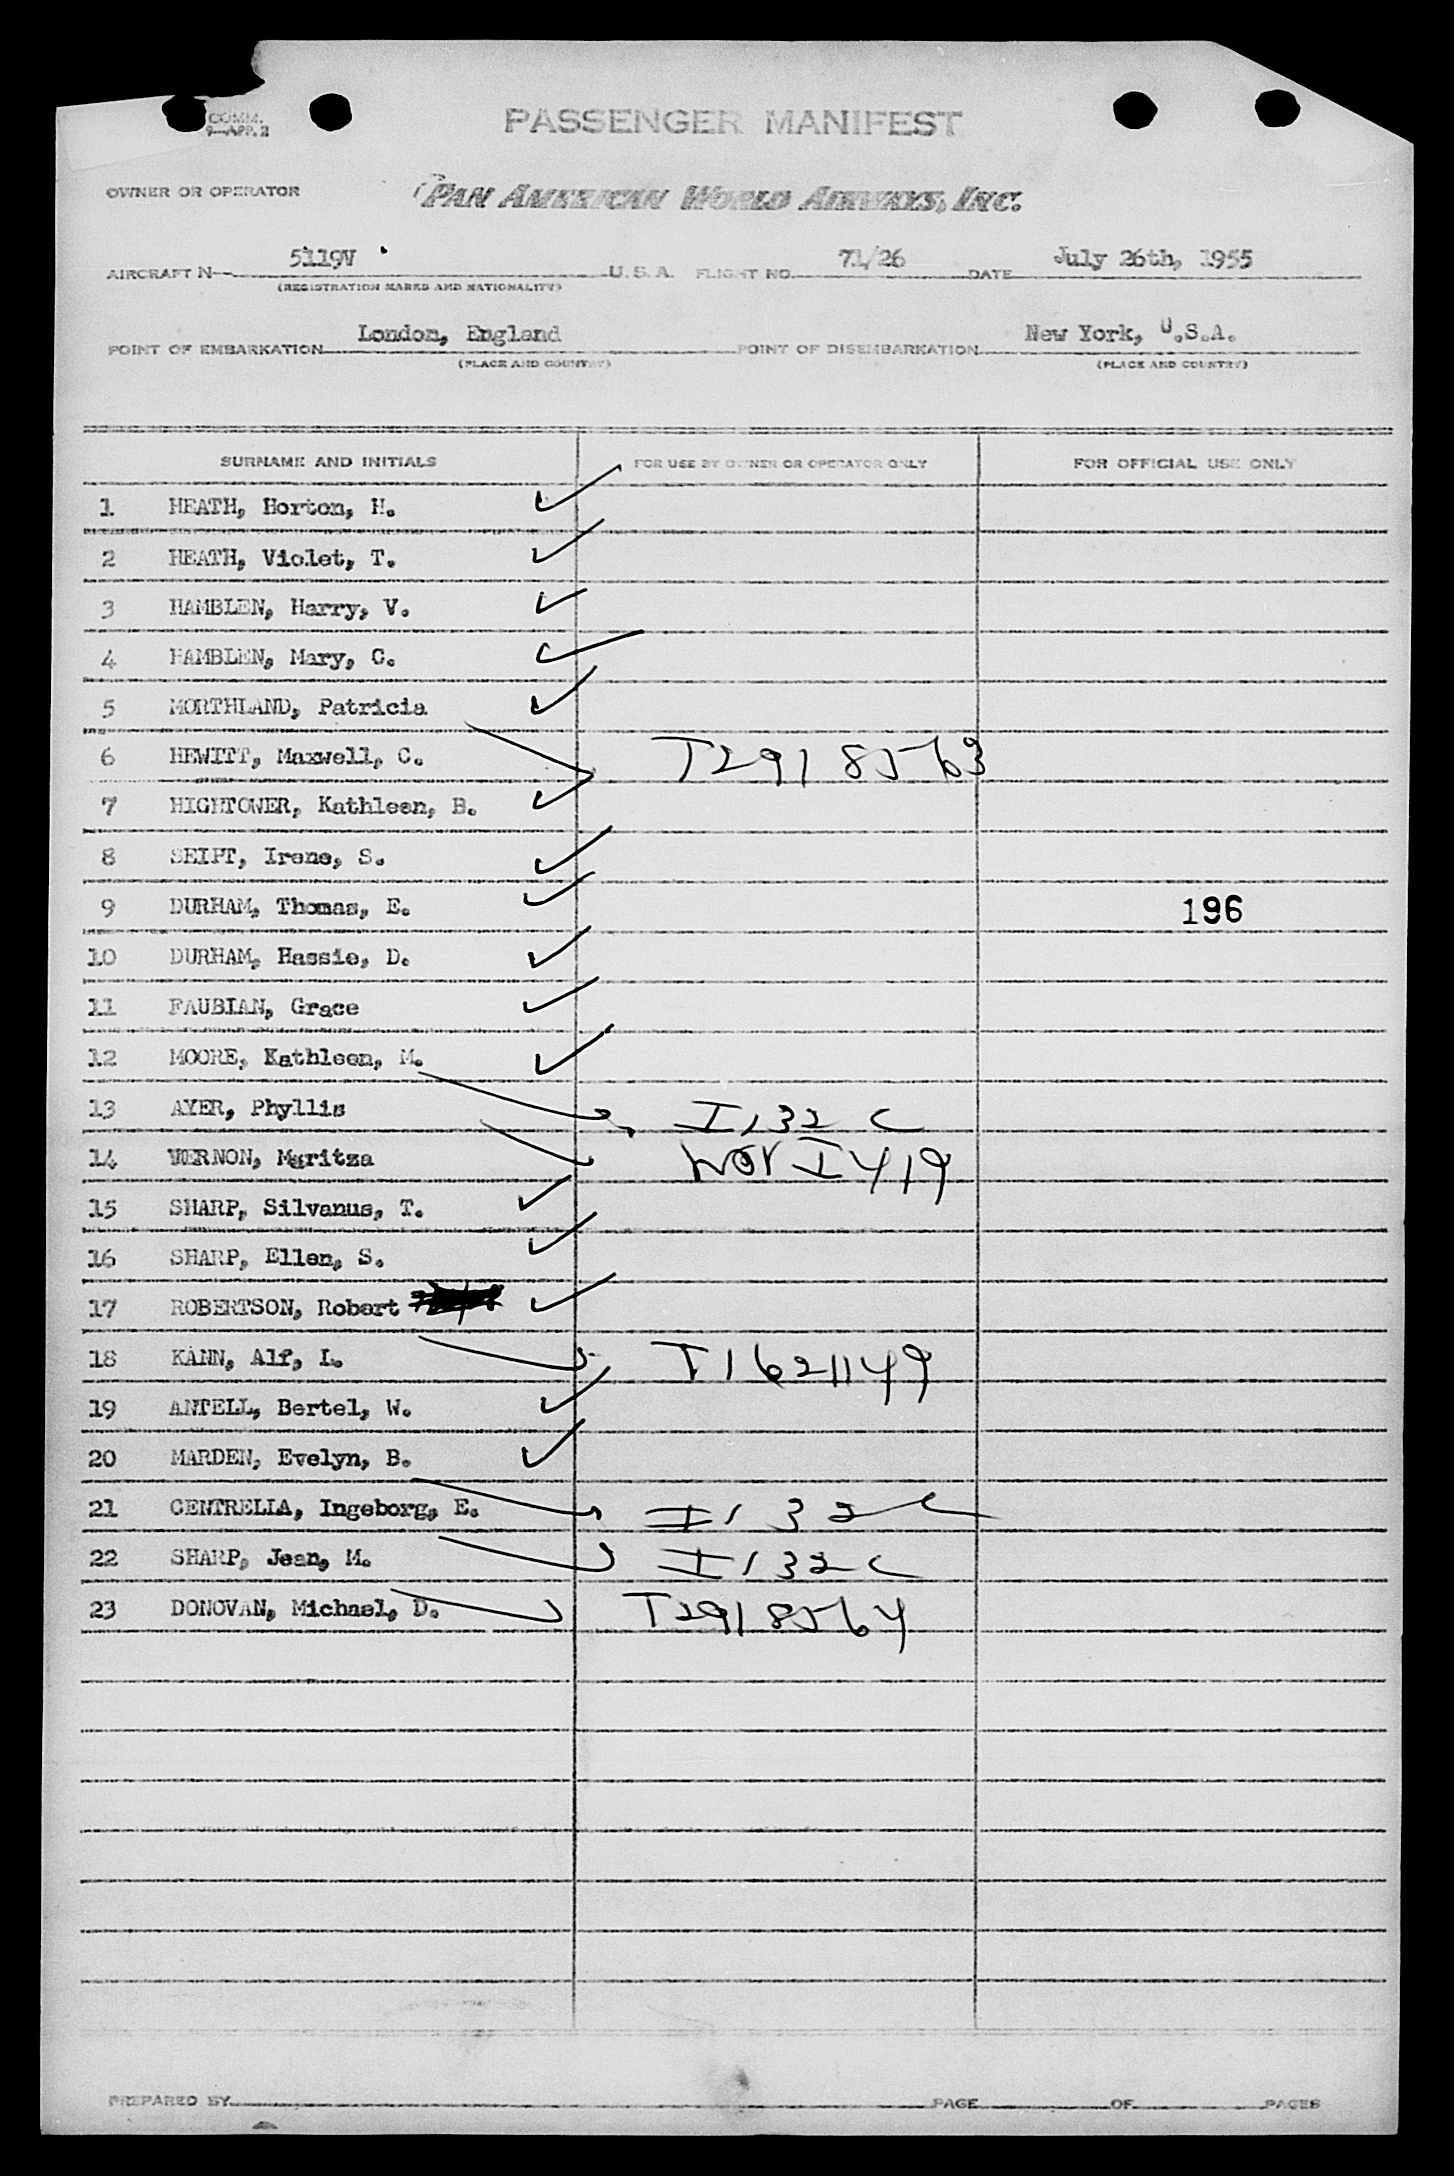 COMM.
9—APP. 2
PASSENGER MANIFEST
OWNER OR OPERATOR PAN AMERICAN WORLD AIRWAYS, INC.
AIRCRAFT N— 5119V U. S. A. FLIGHT NO. 71/26 DATE July 26th, 1955
(REGISTRATION MARKS AND NATIONALITY)
POINT OF EMBARKATION London, England POINT OF DISEMBARKATION New York, U.S.A.
(PLACE AND COUNTRY) (PLACE AND COUNTRY)
SURNAME AND INITIALS FOR USE BY OWNER OR OPERATOR ONLY FOR OFFICIAL USE ONLY
1 HEATH, Horton, H.
2 HEATH, Violet, T.
3 HAMBLEN, Harry, V.
4 HAMBLEN, Mary, C.
5 MORTHLAND, Patricia
6 HEWITT, Maxwell, C. T2918563
7 HIGHTOWER, Kathleen, B.
8 SEIPT, Irene, S.
9 DURHAM, Thomas, E. 196
10 DURHAM, Hassie, D.
11 FAUBIAN, Grace
12 MOORE, Kathleen, M.
13 AYER, Phyllis I 132 C
14 VERNON, Maritza I 419
15 SHARP, Silvanus, T.
16 SHARP, Ellen, S.
17 ROBERTSON, Robert
18 KANN, Alf, L. T1621149
19 ANTELL, Bertel, W.
20 MARDEN, Evelyn, B.
21 CENTRELLA, Ingeborg, E. I 132 C
22 SHARP, Jean, M. I 132 C
23 DONOVAN, Michael, D. T2918564
PREPARED BY PAGE OF PAGES